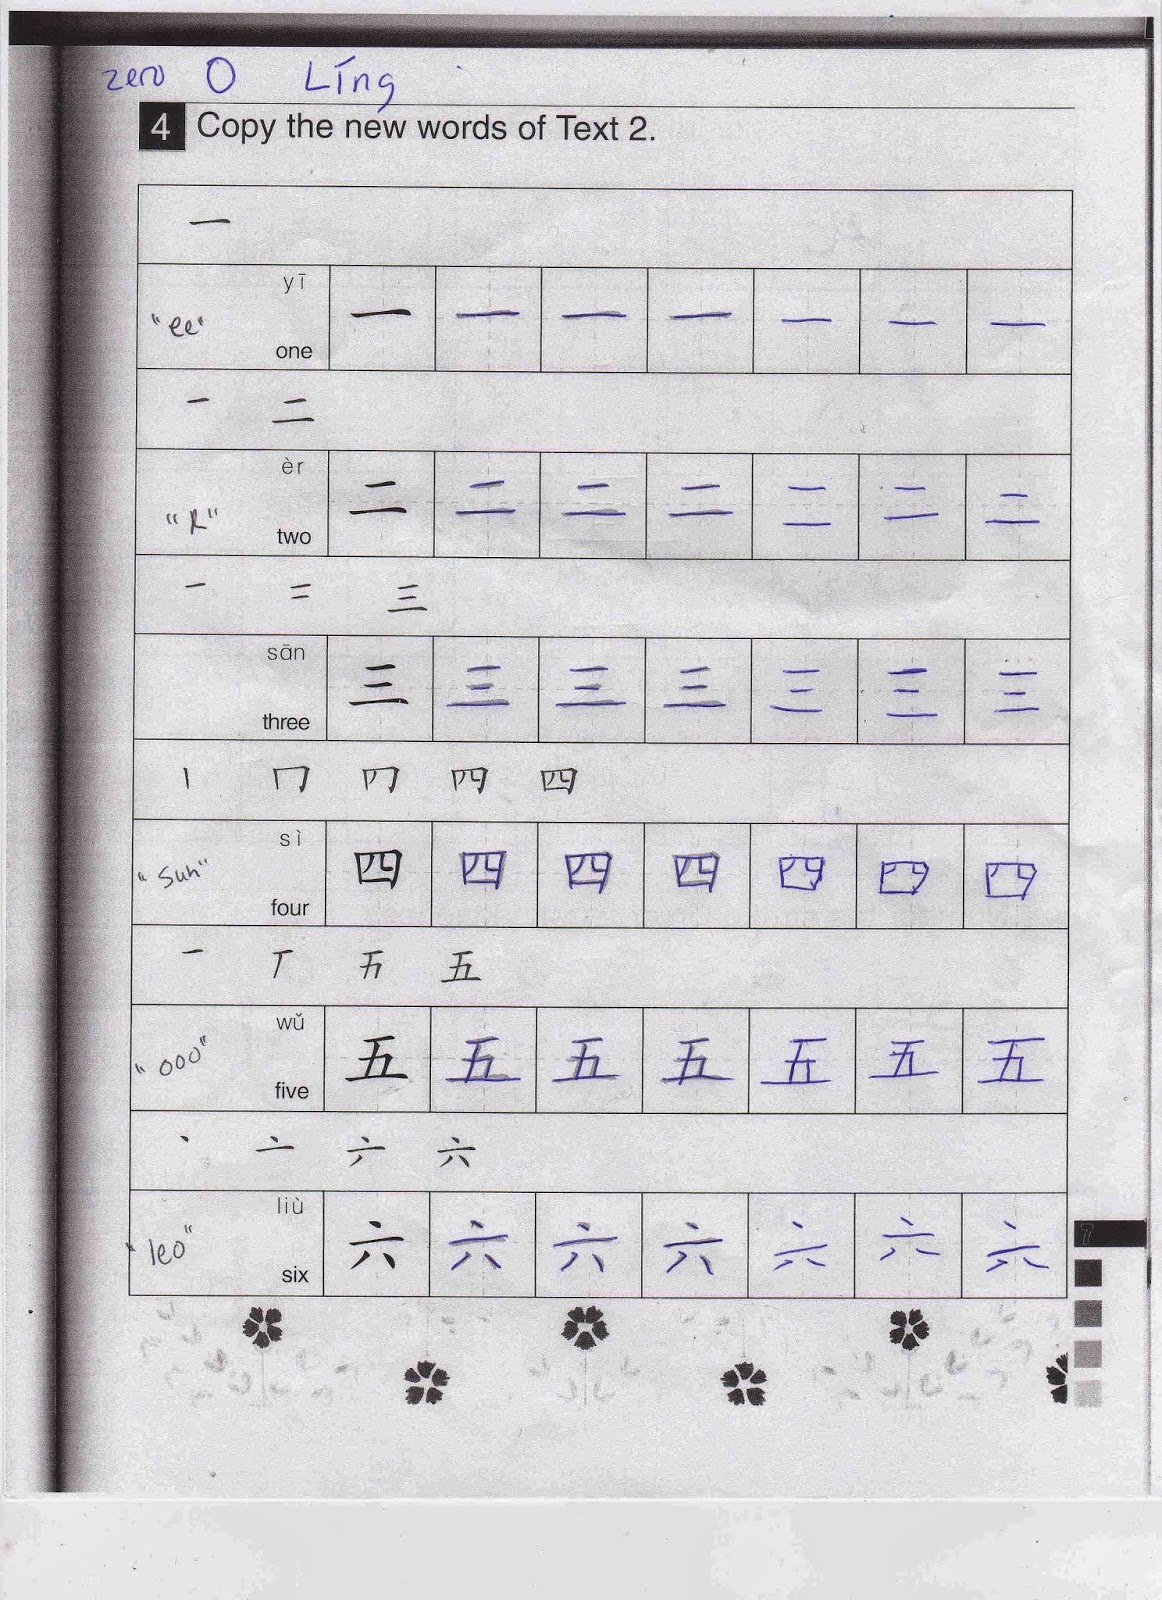 zero 0 Líng
4 Copy the new words of Text 2.
一
yī
"ee"
one
一 一 一 一 一 一 一
一 二
èr
"R"
two
二 二 二 二 二 二 二
一 二 三
sān
three
三 三 三 三 三 三 三
丨 冂 四
sì
"Suh"
four
四 四 四 四 四 四 四
一 丅 五
wǔ
"ooo"
five
五 五 五 五 五 五 五
丶 亠 六
liù
"leo"
six
六 六 六 六 六 六 六
7